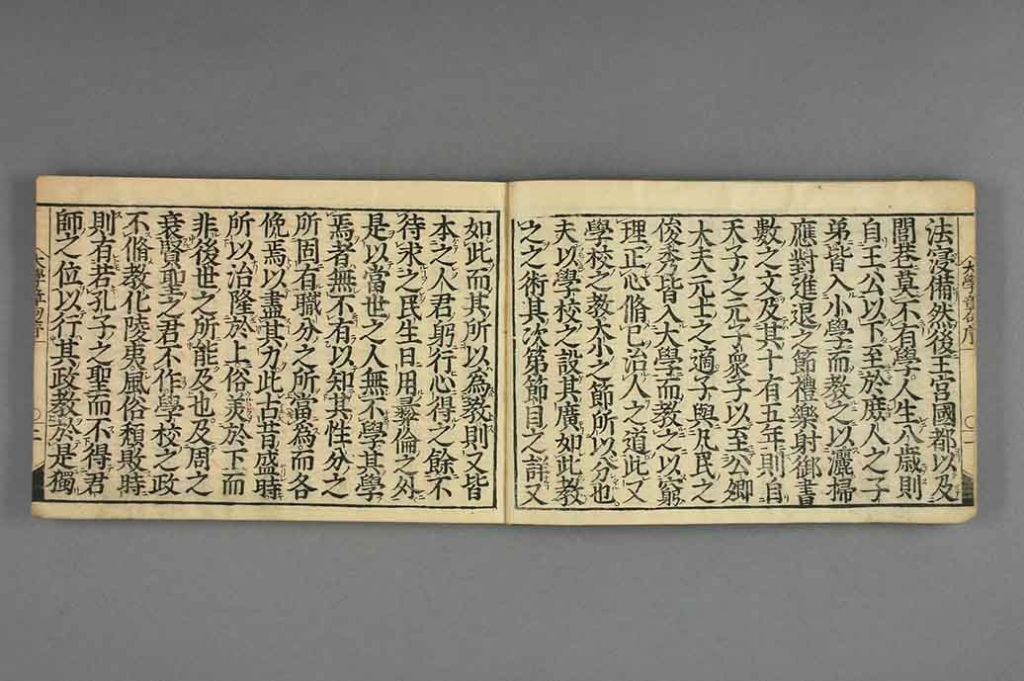 法寖備然後王宮國都以及
閭巷莫不有學人生八歳則
自王公以下至於庶人之子
弟皆入小學而教之以灑掃
應對進退之節禮樂射御書
數之文及其十有五年則自
天子之元子衆子以至公卿
大夫元士之適子與凡民之
俊秀皆入大學而教之以窮
理正心脩已治人之道此又
學校之教大小之節所以分也
夫以學校之設其廣如此教
之之術其次第節目之詳又
如此而其所以為教則又皆
本之人君躬行心得之餘不
待求之民生日用彛倫之外
是以當世之人無不學其學
焉者無不有以知其性分之
所固有職分之所當為而各
俛焉以盡其力此古昔盛時
所以治隆於上俗美於下而
非後世之所能及也及周之
衰賢聖之君不作學校之政
不脩教化陵夷風俗頽敗時
則有若孔子之聖而不得君
師之位以行其政教於是獨